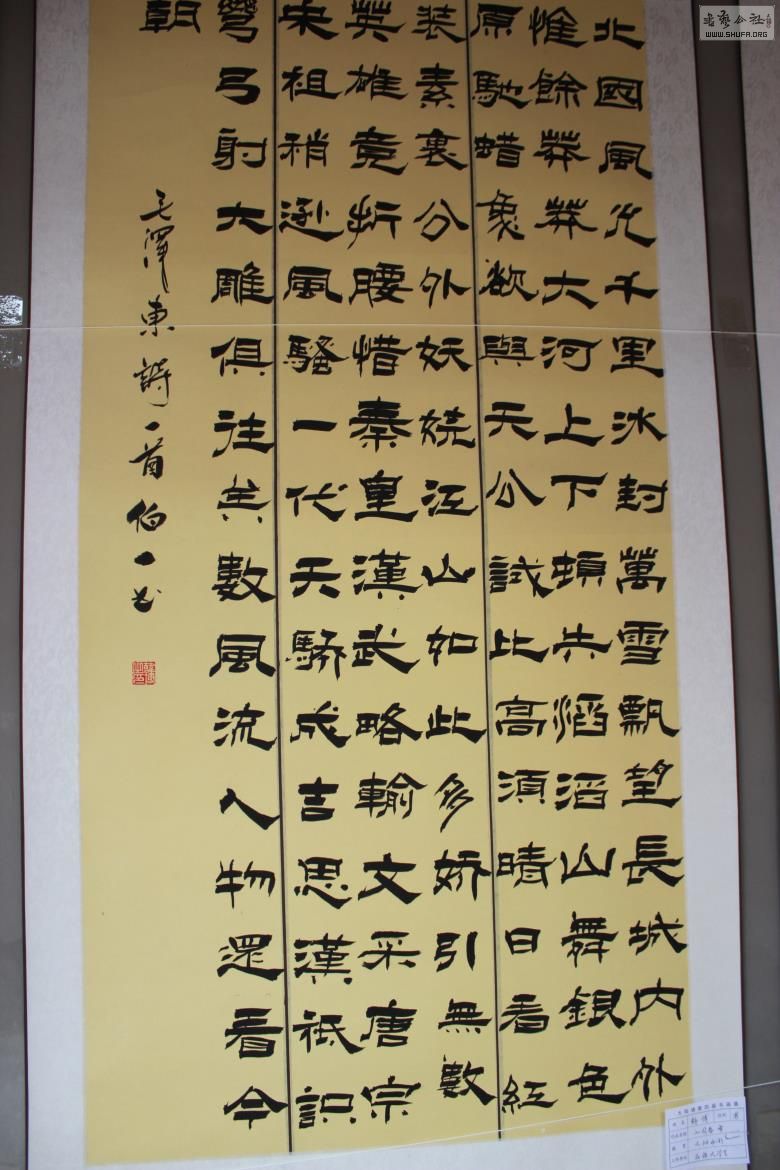 書藝公社
WWW.SHUFA.ORG
北國風光千里冰封萬雪飄望長城内外
惟餘莽莽大河上下頓失滔滔山舞銀色
原馳蜡象欲與天公試比高須晴日看紅
装素裹分外妖娆江山如此多娇引無數
英雄竞折腰惜秦皇漢武略輸文采唐宗
宋祖稍遜風騷一代天驕成吉思漢祇識
彎弓射大雕俱往矣數風流人物還看今
朝
毛澤東詩一首伯一书